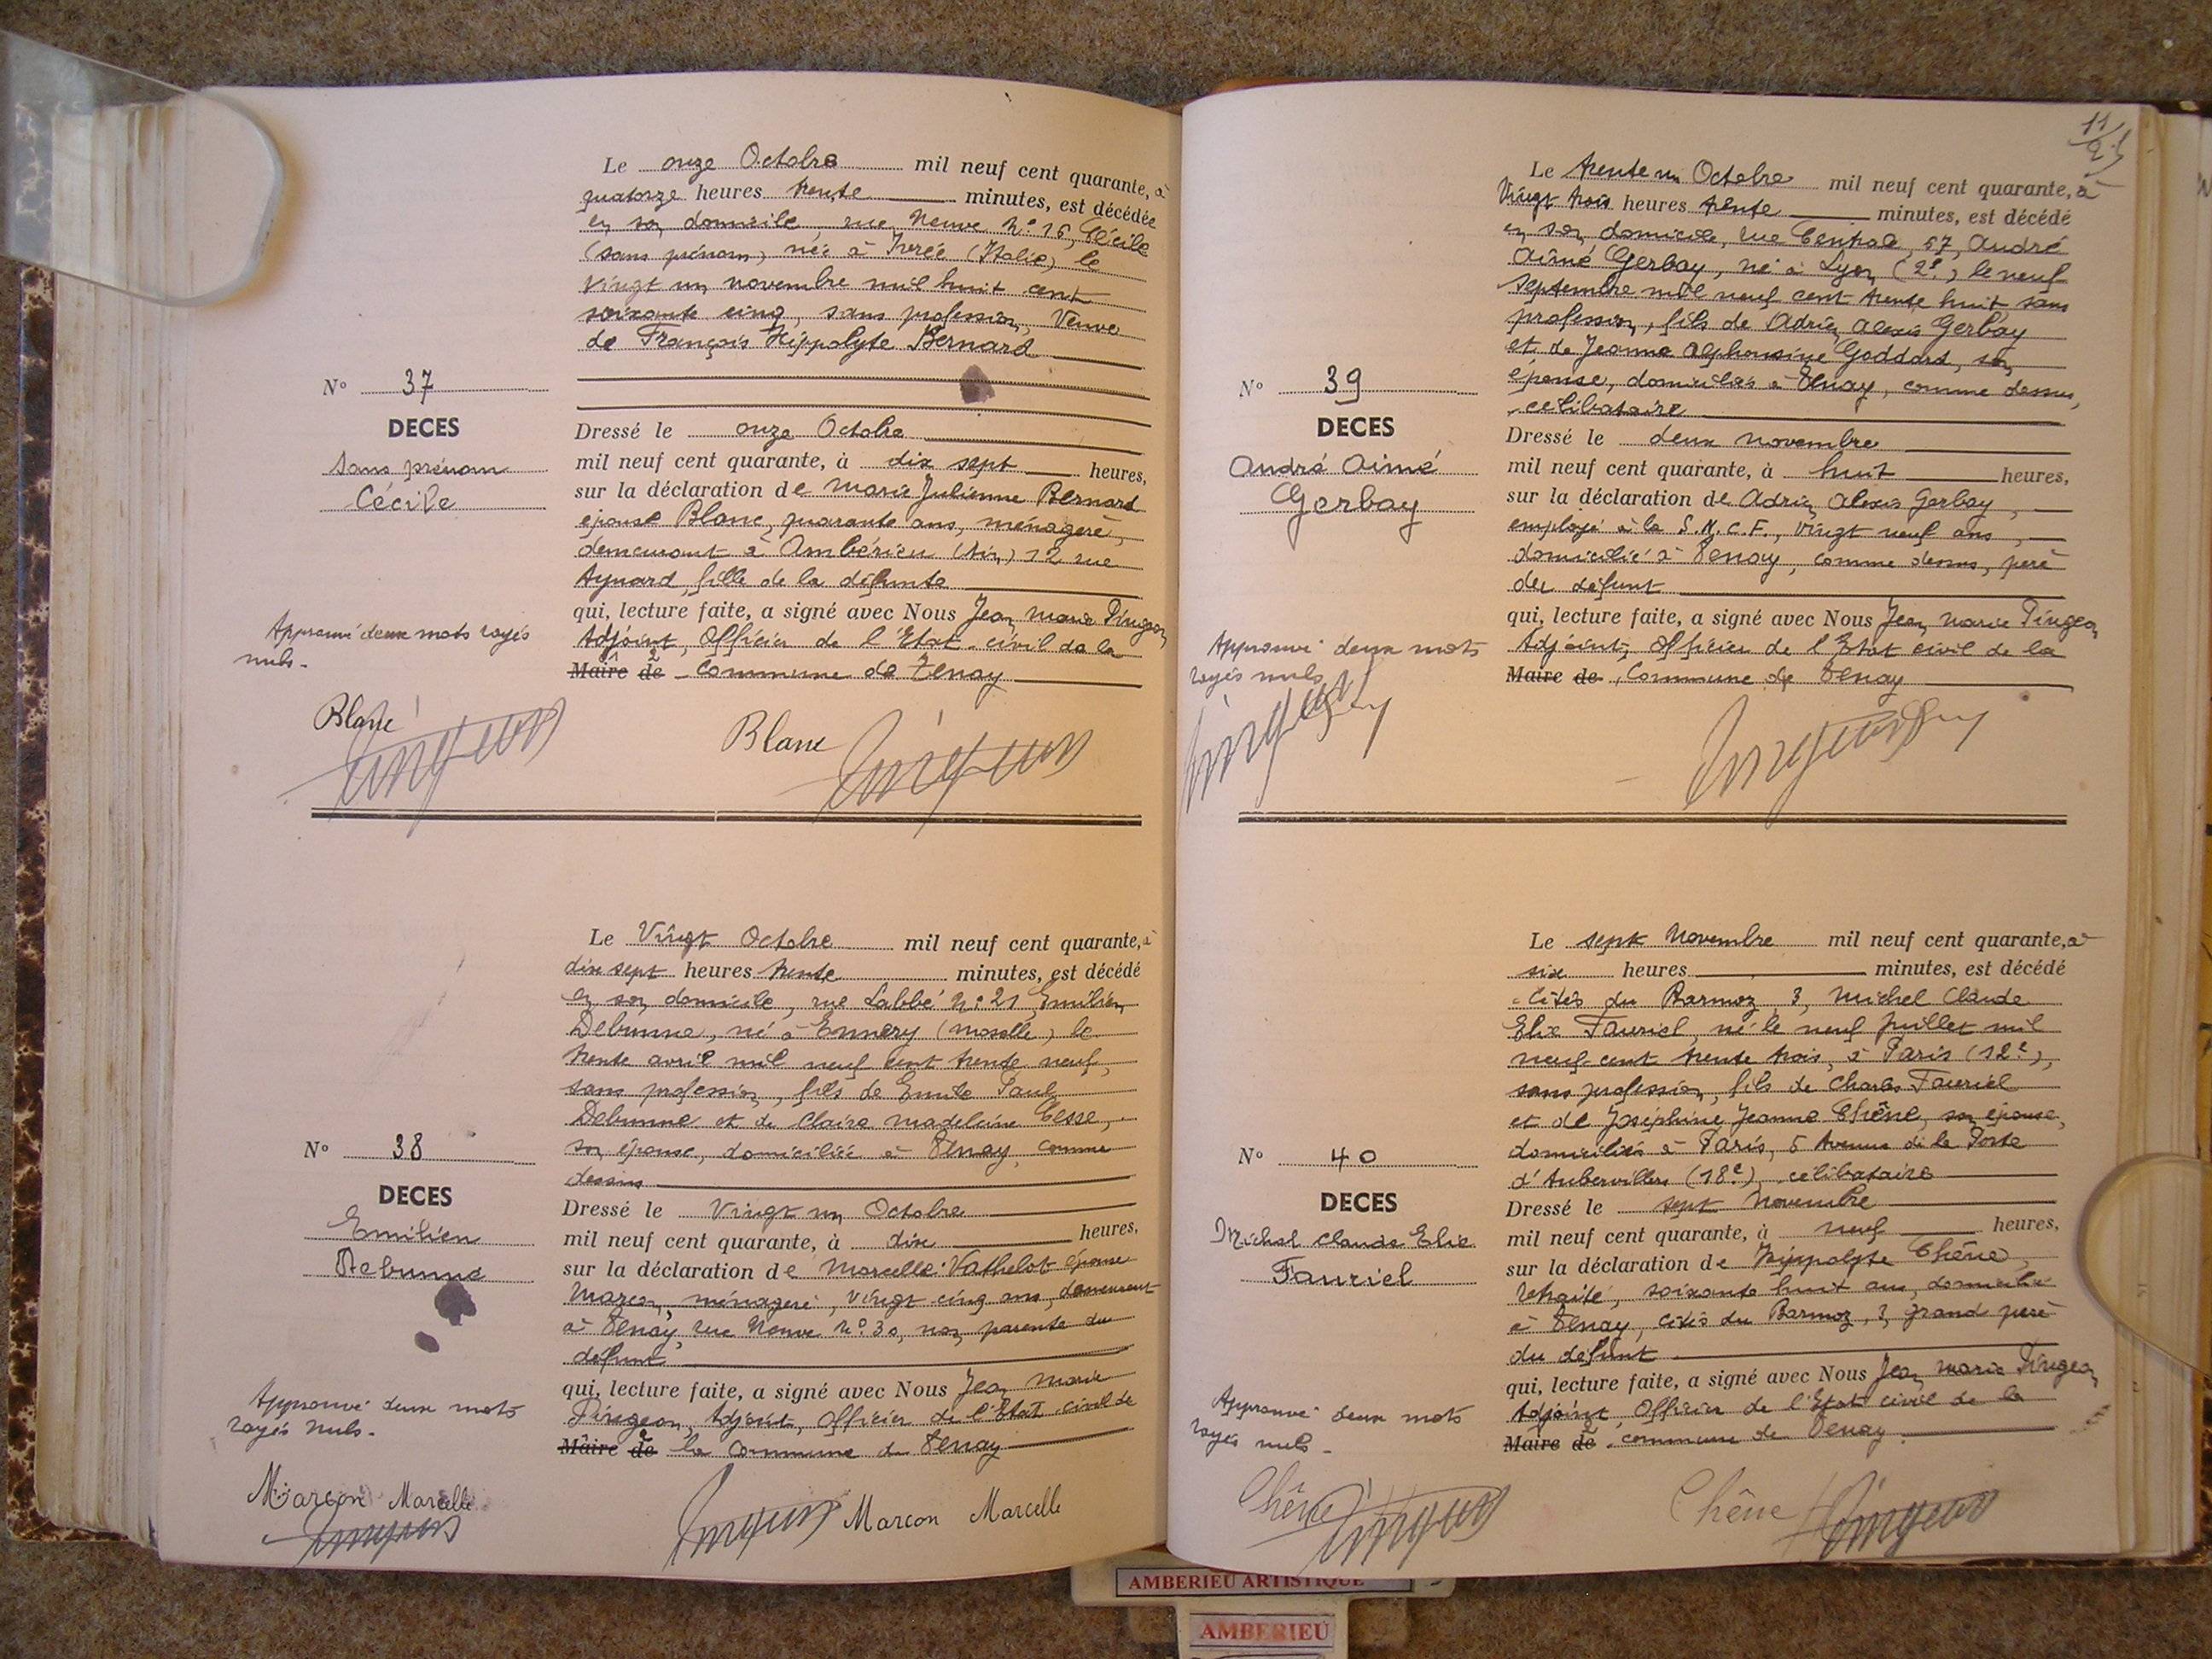 Le onze Octobre mil neuf cent quarante, à
quatorze heures trente minutes, est décédée
en son domicile rue Neuve N° 16, Cécile
(sans prénom) née à Ivrée (Italie) le
vingt un novembre mil huit cent
soixante cinq, sans profession, Veuve
de François Hippolyte Bernard
N° 37
DECES
Sans prénom
Cécile
Dressé le onze Octobre
mil neuf cent quarante, à dix sept heures,
sur la déclaration de Marie Julienne Bernard
épouse Blanc, quarante ans, ménagère,
demeurant à Ambérieu (Ain) 12 rue
Aynard, fille de la défunte
qui, lecture faite, a signé avec Nous Jean Marie Pingeon
Adjoint, Officier de l'Etat-civil de la
Maire de commune de Tenay
Approuvé deux mots rayés
nuls.
Blanc
Pingeon
Blanc
Pingeon
Le Vingt Octobre mil neuf cent quarante, à
dix sept heures trente minutes, est décédé
en son domicile, rue Labbé N° 21, Emilien
Debunne, né à Ennery (Moselle) le
trente avril mil neuf cent trente neuf,
sans profession, fils de Emile Paul
Debunne et de Claire Madeleine Cesse,
son épouse, domiciliée à Tenay, comme
dessus
N° 38
DECES
Emilien
Debunne
Dressé le Vingt un Octobre
mil neuf cent quarante, à dix heures,
sur la déclaration de Marcelle Vathelot épouse
Marcon, ménagère, vingt cinq ans, demeurant
à Tenay, rue Neuve N° 30, non parente du
défunt
qui, lecture faite, a signé avec Nous Jean Marie
Pingeon, Adjoint, Officier de l'Etat civil de
Maire de la commune de Tenay
Approuvé deux mots
rayés nuls.
Marcon Marcelle
Pingeon
Pingeon Marcon Marcelle
11
Le trente un Octobre mil neuf cent quarante, à
Vingt trois heures trente minutes, est décédé
en son domicile, rue Centrale, 57, André
Aimé Gerbay, né à Lyon (2e) le neuf
Septembre mil neuf cent trente huit sans
profession, fils de Adrien Alexis Gerbay
et de Jeanne Alphonsine Goddard, son
épouse, domiciliés à Tenay, comme dessus,
célibataire
N° 39
DECES
André Aimé
Gerbay
Dressé le deux novembre
mil neuf cent quarante, à huit heures,
sur la déclaration de Adrien Alexis Gerbay,
employé à la S.N.C.F., vingt neuf ans,
domicilié à Tenay, comme dessus, père
du défunt
qui, lecture faite, a signé avec Nous Jean Marie Pingeon
Adjoint, Officier de l'Etat civil de la
Maire de Commune de Tenay
Approuvé deux mots
rayés nuls
Pingeon
Pingeon
Le sept Novembre mil neuf cent quarante, à
six heures minutes, est décédé
cités du Barmoz, 3, Michel Claude
Elie Fauriel, né le neuf juillet mil
neuf cent trente trois, à Paris (12e),
sans profession, fils de Charles Fauriel
et de Joséphine Jeanne Chêne, son épouse,
domiciliés à Paris, 5 Avenue de la Porte
d'Aubervilliers (18e), célibataire
N° 40
DECES
Michel Claude Elie
Fauriel
Dressé le sept Novembre
mil neuf cent quarante, à neuf heures,
sur la déclaration de Hippolyte Chêne,
retraité, soixante huit ans, domicilié
à Tenay, cités du Barmoz, 3, grand père
du défunt
qui, lecture faite, a signé avec Nous Jean Marie Pingeon
Adjoint, Officier de l'Etat civil de la
Maire de commune de Tenay
Approuvé deux mots
rayés nuls.
Chêne Pingeon
Chêne Pingeon
AMBERIEU ARTISTIQUE
AMBERIEU